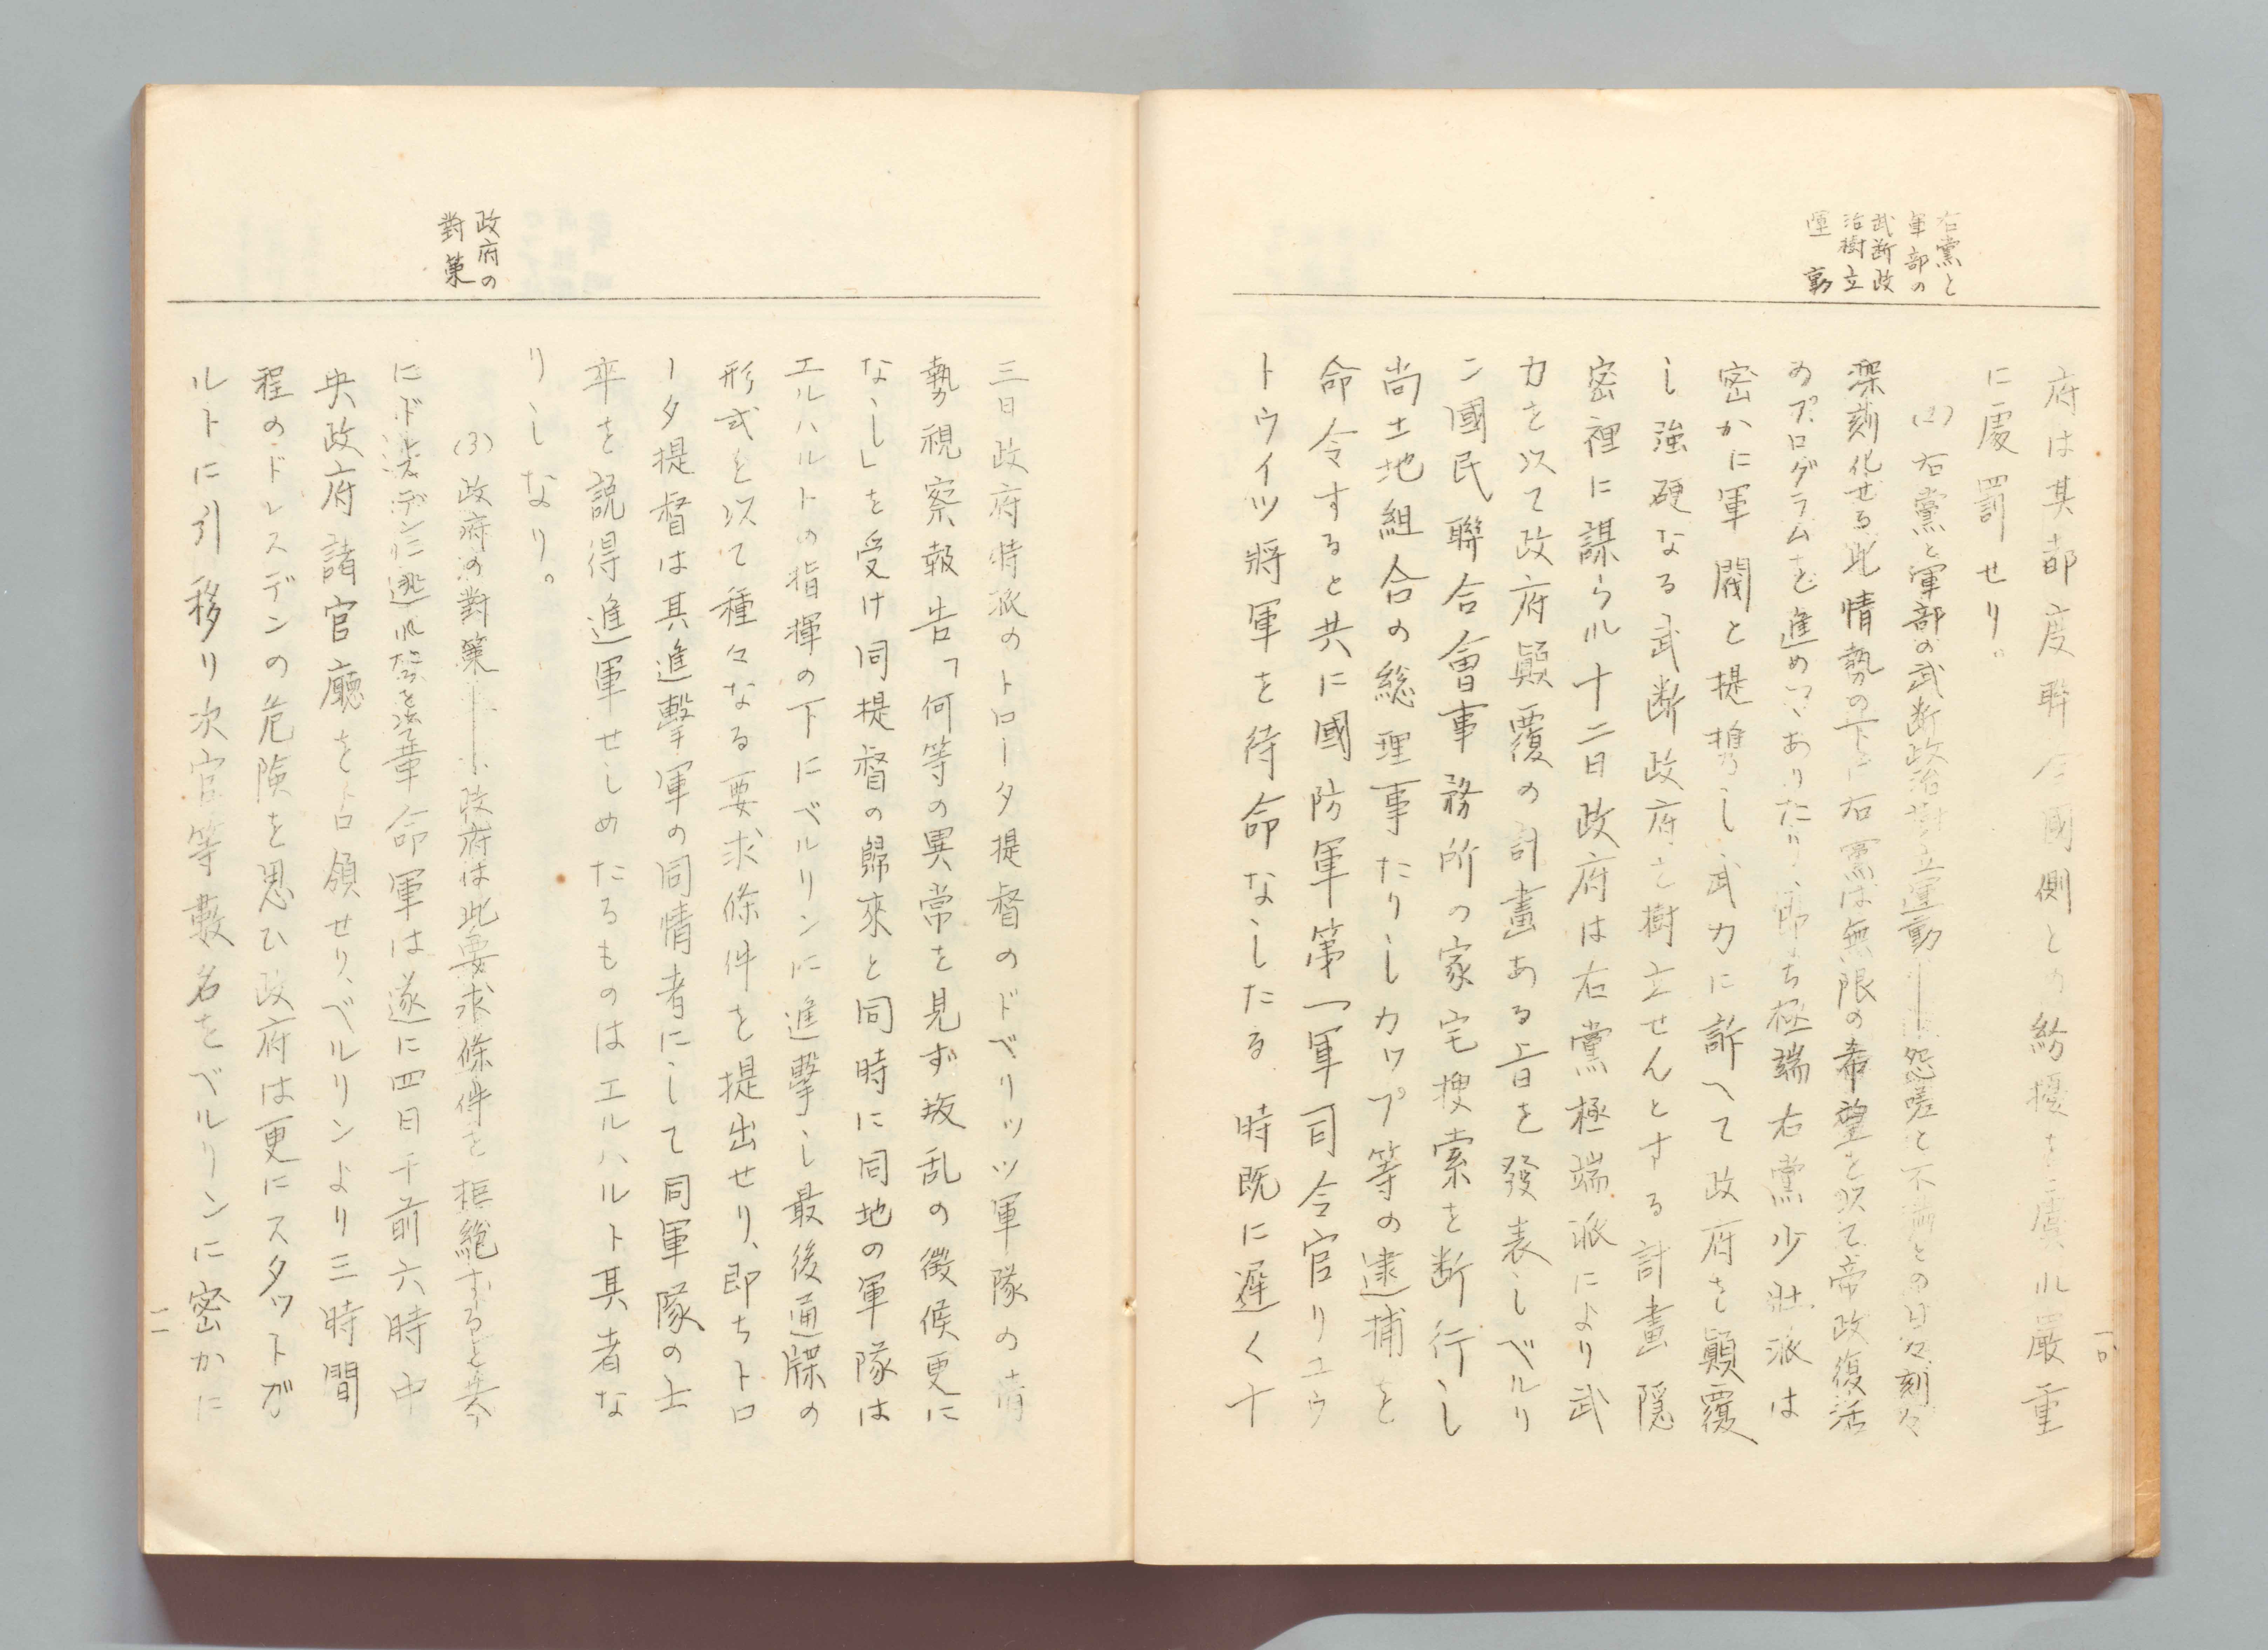 右黨と
軍部の
武断政
治樹立
運動
府は其都度聯合國側との紛擾を慮り厳重
に處罰せり。
(2)右黨と軍部の武断政治樹立運動──怨嗟と不満との日々刻々
深刻化せる此情勢の下に右黨は無限の希望を以て帝政復活
のプログラムを進めつゝありたり、即ち極端右黨少壯派は
密かに軍閥と提携し武力に訴へて政府を顛覆
し強硬なる武断政府を樹立せんとする計畫隠
密裡に謀らル十二日政府は右黨極端派により武
力を以て政府顛覆の計畫ある旨を發表しベルリ
ン國民聯合會事務所の家宅捜索を断行し
尚土地組合の総理事たりしカップ等の逮捕を
命令すると共に國防軍第一軍司令官リュウ
トウイツ將軍を待命なしたる時既に遅く十
一〇
政府の
對策
三日政府特派のトロータ提督のドベリッツ軍隊の情
勢視察報告「何等の異常を見ず叛乱の徴候更に
なし」を受け同提督の歸來と同時に同地の軍隊は
エルハルトの指揮の下にベルリンに進擊し最後通牒の
形式を以て種々なる要求條件を提出せり、即ちトロ
ータ提督は其進擊軍の同情者にして同軍隊の士
卒を説得進軍せしめたるものはエルハルト其者な
りしなり。
(3)政府の對策──政府は此要求條件を拒絶すると共
にドレスデンに逃れたるを以て革命軍は遂に四日午前六時中
央政府諸官廳を占領せり、ベルリンより三時間
程のドレスデンの危険を思ひ政府は更にスタットガ
ルトに引移り次官等數名をベルリンに密かに
一一